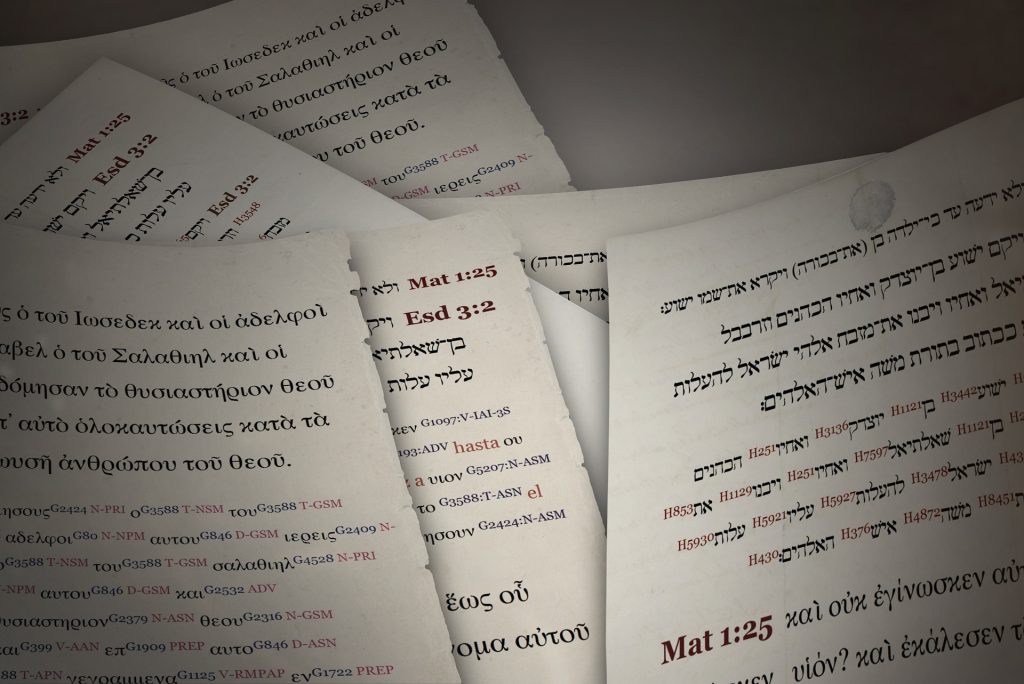 Ιωσεδεκ καὶ οἱ ἀδελφ
ὁ τοῦ Σαλαθιηλ καὶ οἱ
τὸ θυσιαστήριον θεοῦ
καυτώσεις κατὰ τὰ
τοῦ θεοῦ.
τουG3588 T-GSM
D-GSM ιερειςG2409 N-
N-PRI
3:2
Mat 1:25 ולא ידעה עד
Esd 3:2 ויקם ישו
בן־שאלתיאל
עליו עלות
Esd 3:2
H3548
ς ὁ τοῦ Ιωσεδεκ καὶ οἱ ἀδελφοὶ
αβελ ὁ τοῦ Σαλαθιηλ καὶ οἱ
δόμησαν τὸ θυσιαστήριον θεοῦ
τ’ αὐτὸ ὁλοκαυτώσεις κατὰ τὰ
ωυσῆ ἀνθρώπου τοῦ θεοῦ.
ησουςG2424 N-PRI οG3588 T-NSM τουG3588 T-GSM
αδελφοιG80 N-NPM αυτουG846 D-GSM ιερειςG2409 N-
G3588 T-NSM τουG3588 T-GSM σαλαθιηλG4528 N-PRI
-NPM αυτουG846 D-GSM καιG2532 ADV
υσιαστηριονG2379 N-ASN θεουG2316 N-GSM
αιG399 V-AAN επG1909 PREP αυτοG846 D-ASN
88 T-APN γεγραμμεναG1125 V-RMPAP ενG1722 PREP
Mat 1:25 ולא
Esd 3:2
בן־שאלתיא
עליו עלות
κεν G1097:V-IAI-3S
193:ADV hasta ου
a υιον G5207:N-ASM
το G3588:T-ASN el
ησουν G2424:N-ASM
ἕως οὗ
νομα αὐτοῦ
את־בכורה)
אחיו
ולא ידעה עד כי־ילדה בן (את־בכורה) ויקרא את־שמו ישוע:
ויקם ישוע בן־יוצדק ואחיו הכהנים וזרבבל
יאל ואחיו ויבנו את־מזבח אלהי ישראל להעלות
ככתוב בתורת משה איש־האלהים:
ישועH3442 בןH1121 יוצדקH3136 ואחיוH251 הכהנים
בןH1121 שאלתיאלH7597 ואחיוH251 ויבנוH1129 אתH853
ישראלH3478 להעלותH5927 עליוH5921 עלותH5930
H8451 משהH4872 אישH376 האלהים:H430
Mat 1:25 καὶ οὐκ ἐγίνωσκεν αὐτ
υἱόν? καὶ ἐκάλεσεν τ